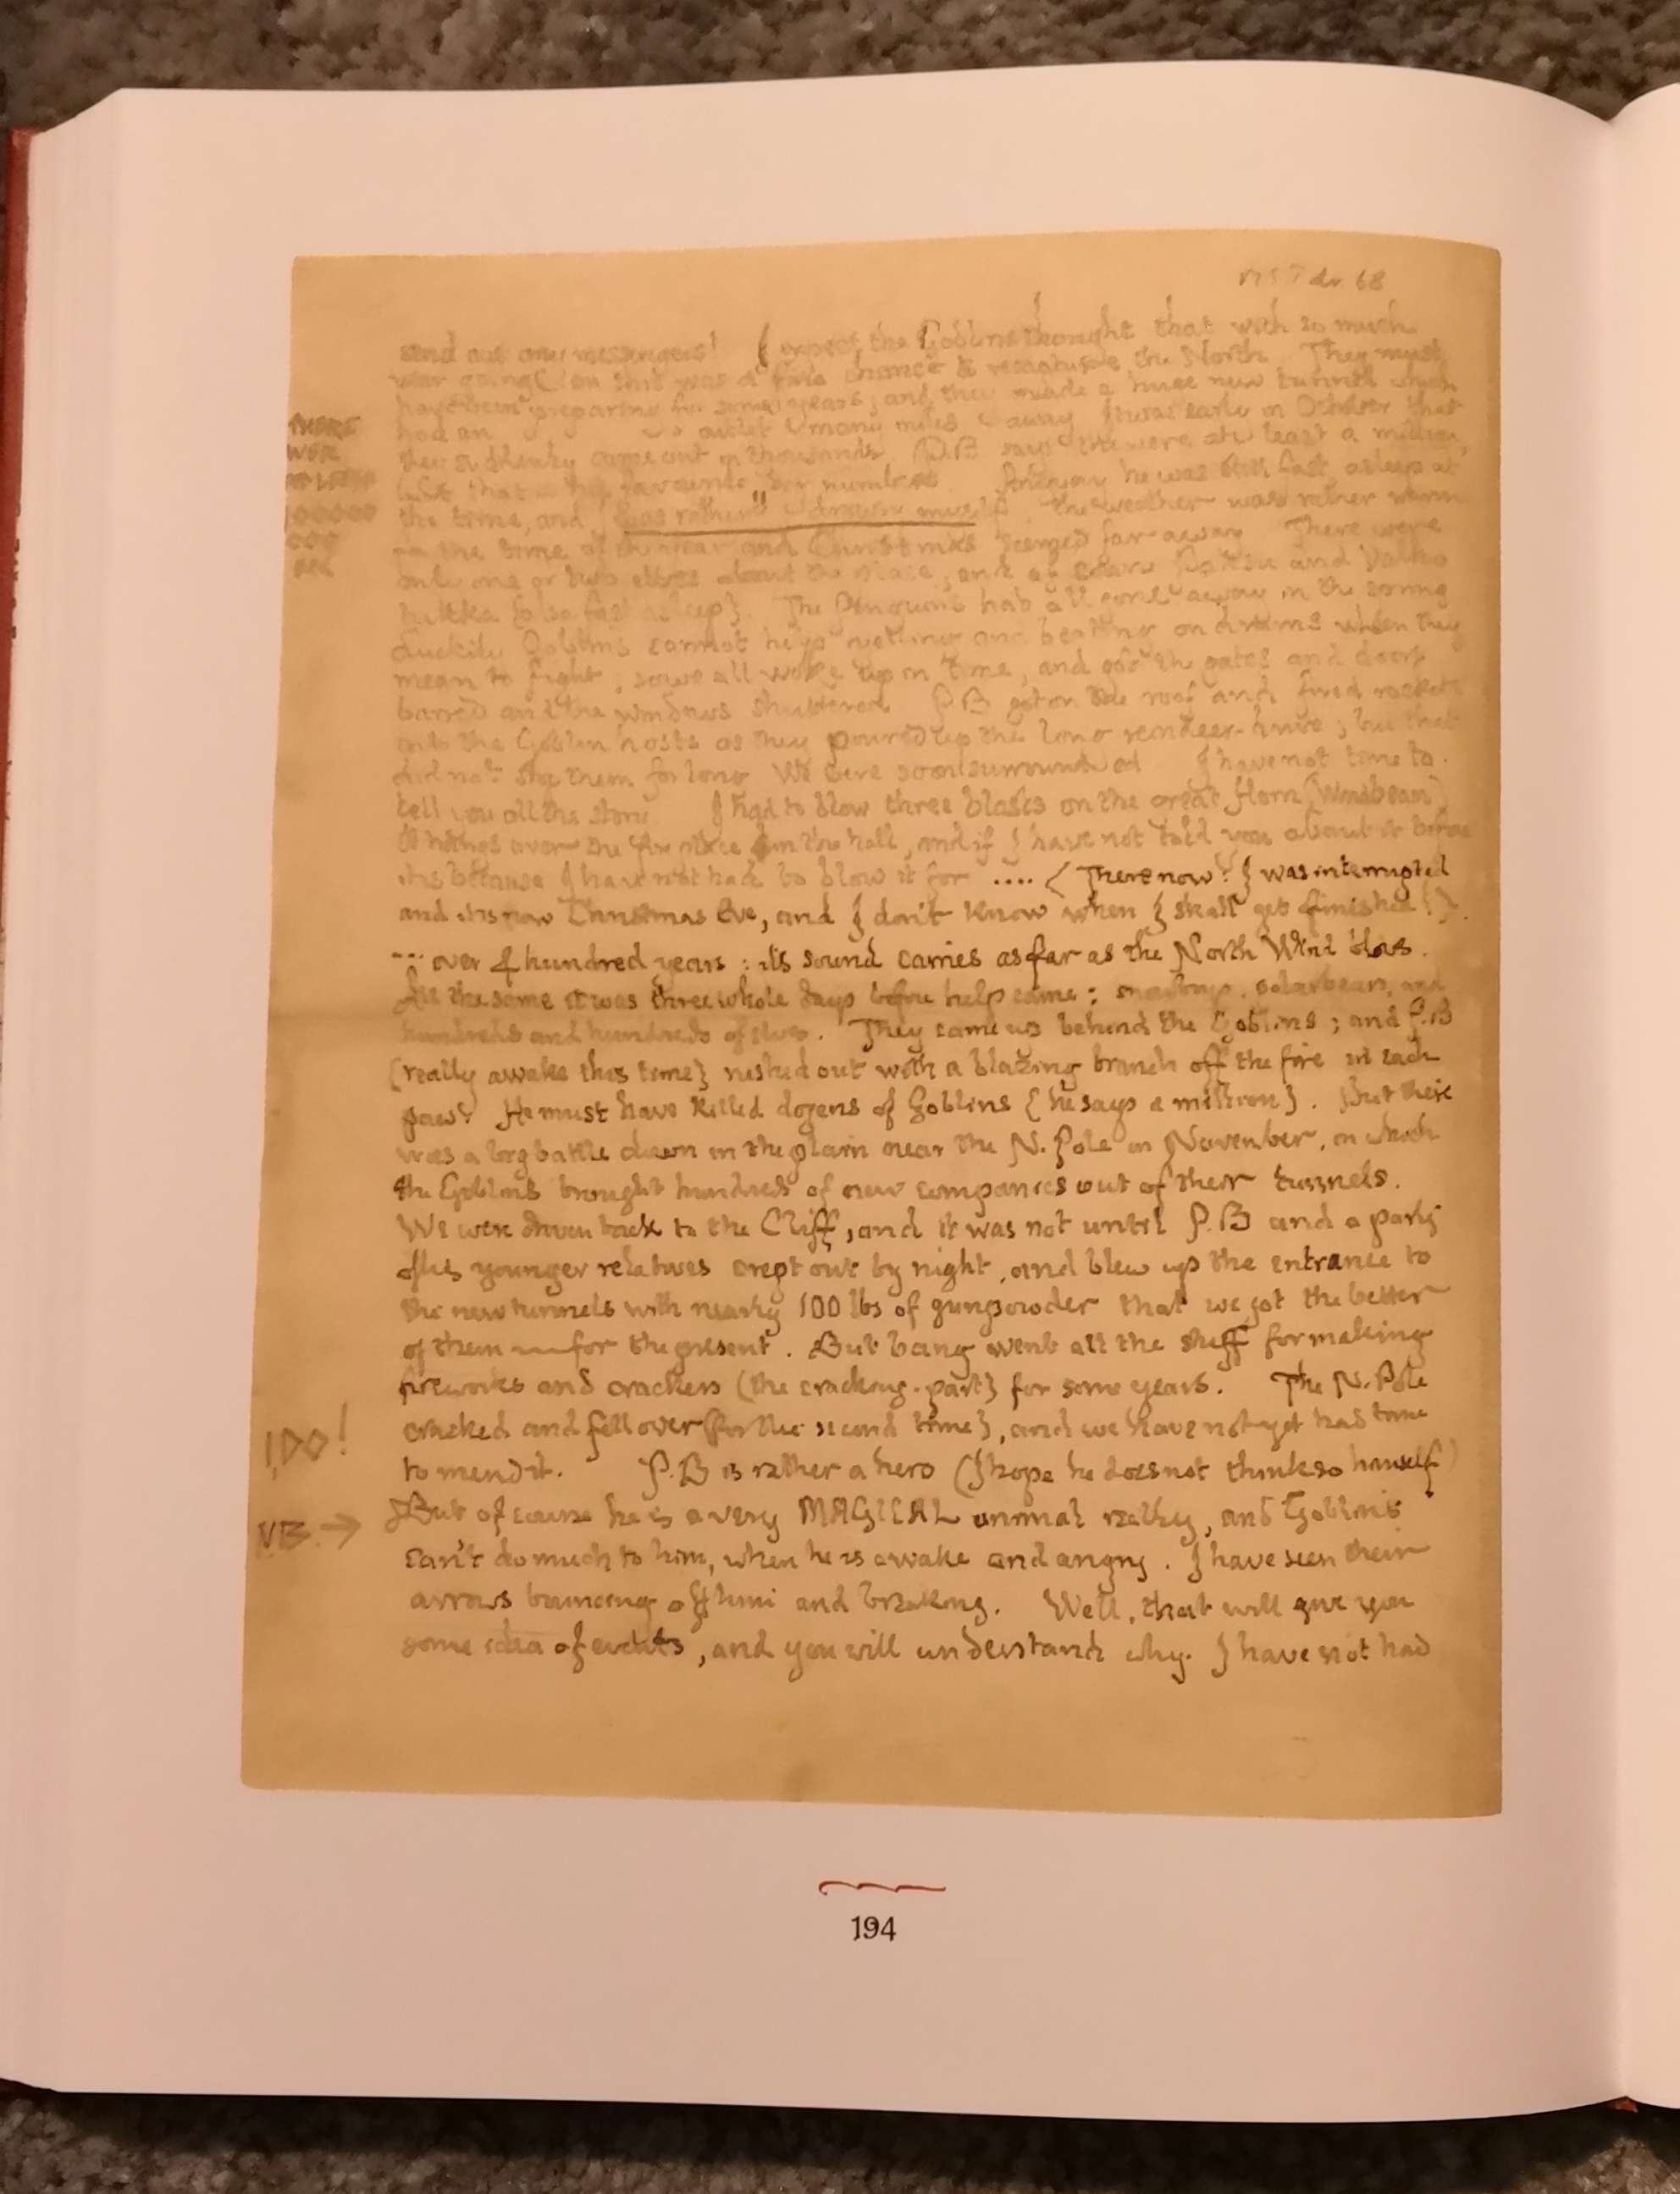 send out any messengers! I expect the Goblins thought that with so much
war going on this was a fine chance to recapture the North. They must
have been preparing for some years; and they made a huge new tunnel which
had an outlet many miles away. It was early in October that
they suddenly came out in thousands. P.B says there were at least a million,
but that is his favourite big number. Anyway he was still fast asleep at
the time, and I was rather drowsy myself. the weather was rather warm
for the time of the year and Christmas seemed far away. There were
only one or two elves about the place; and of course Paksu and Valko
hukka (also fast asleep). The Penguins had all gone away in the spring
Luckily Goblins cannot help yelling and beating on drums when they
mean to fight; so we all woke up in time, and got the gates and doors
barred and the windows shuttered. P.B got on the roof and fired rockets
into the Goblin hosts as they poured up the long reindeer-drive; but that
did not stop them for long. We were soon surrounded. I have not time to
tell you all the story. I had to blow three blasts on the great Horn (Windbeam)
It hangs over the fireplace in the hall, and if I have not told you about it before
it is because I have not had to blow it for .... (There now! I was interrupted
and it is now Christmas Eve, and I don't know when I shall get finished!)
... over a hundred years: its sound carries as far as the North Wind blows.
All the same it was three whole days before help came: snowboys, polarbears, and
hundreds and hundreds of elves. They came up behind the Goblins; and P.B
(really awake this time) rushed out with a blazing branch off the fire in each
paw. He must have killed dozens of Goblins (he says a million). But there
was a big battle down in the plain near the N. Pole in November, in which
the Goblins brought hundreds of new companies out of their tunnels.
We were driven back to the Cliff, and it was not until P.B and a party
of his younger relatives crept out by night, and blew up the entrance to
the new tunnels with nearly 100 lbs of gunpowder that we got the better
of them — for the present. But bang went all the stuff for making
fireworks and crackers (the cracking-part) for some years. The N. Pole
cracked and fell over (for the second time), and we have not yet had time
to mend it. P.B is rather a hero (I hope he does not think so himself)
I DO!
But of course he is a very MAGICAL animal really, and Goblins
can't do much to him, when he is awake and angry. I have seen their
arrows bouncing off him and breaking. Well, that will give you
some idea of events, and you will understand why I have not had
194